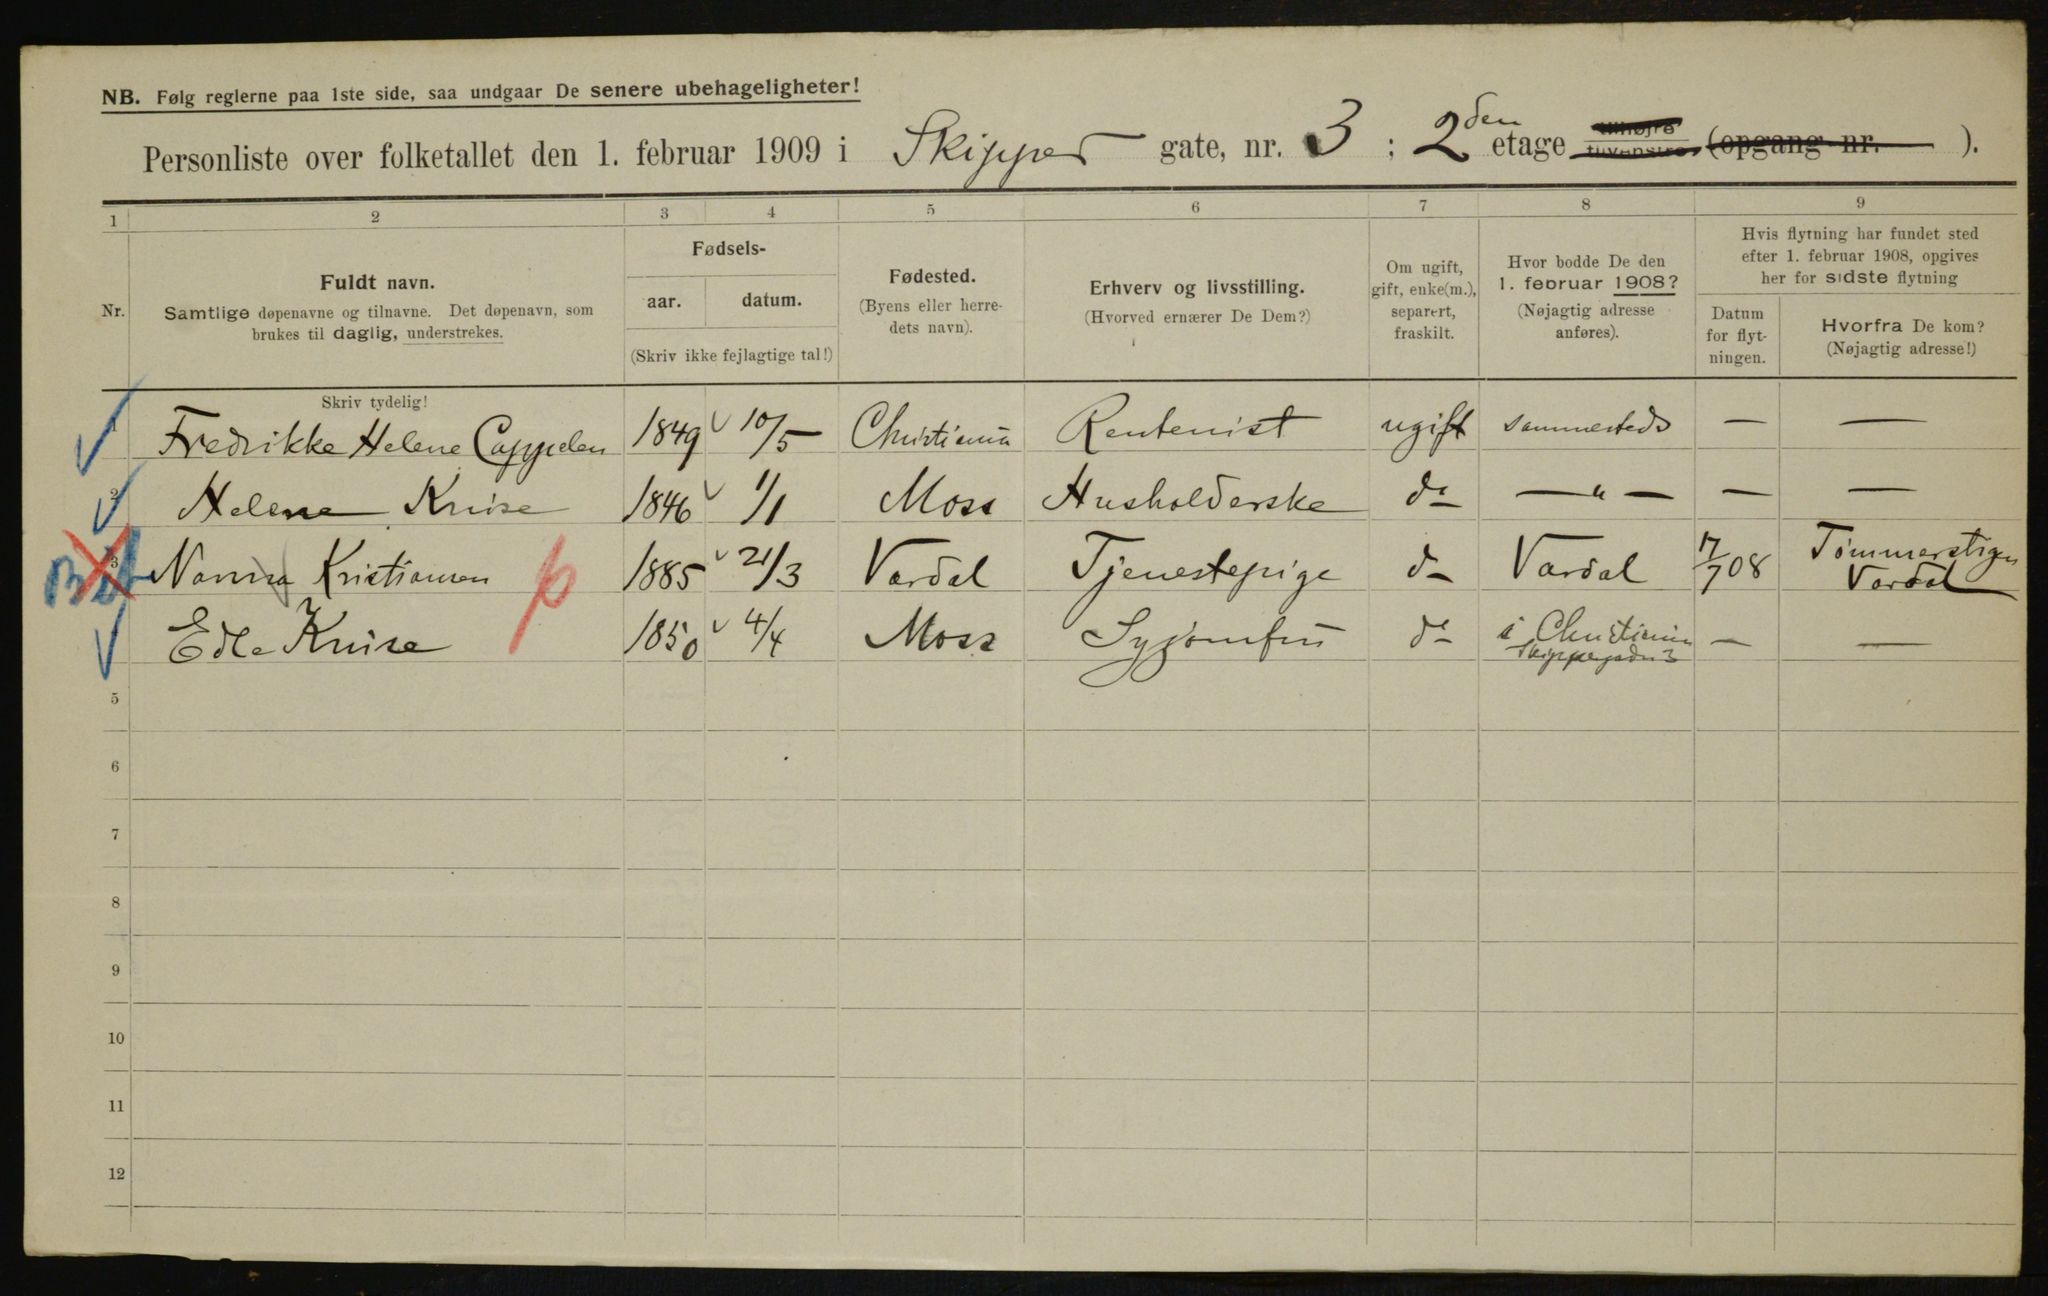 NB. Følg reglerne paa 1ste side, saa undgaar De senere ubehageligheter!
Personliste over folketallet den 1. februar 1909 i Skipper gate, nr. 3 ; 2den etage tilhøjre tilvenstre (opgang nr. ).
1 2 3 4 5 6 7 8 9
Nr.
Fuldt navn.
Samtlige døpenavne og tilnavne. Det døpenavn, som
brukes til daglig, understrekes.
Fødsels-
aar. datum.
(Skriv ikke fejlagtige tal!)
Fødested.
(Byens eller herre-
dets navn).
Erhverv og livsstilling.
(Hvorved ernærer De Dem?)
Om ugift,
gift, enke(m.),
separert,
fraskilt.
Hvor bodde De den
1. februar 1908?
(Nøjagtig adresse
anføres).
Hvis flytning har fundet sted
efter 1. februar 1908, opgives
her for sidste flytning
Datum
for flyt-
ningen.
Hvorfra De kom?
(Nøjagtig adresse!)
Skriv tydelig!
Fredrikke Helene Cappelen 1849 10/5 Christiania Rentenist ugift sammesteds — —
2 Helene Kruse 1846 1/1 Moss Husholderske do — " — — —
3 Nanna Kristiansen 1885 21/3 Vardal Tjenestepige do Vardal 17/7 08 Tømmerstigen
Vardal
Edle Kruse 1850 4/4 Moss Syjomfru do i Christiania — —
Skippergaden 3
5
6
7
8
9
10
11
12